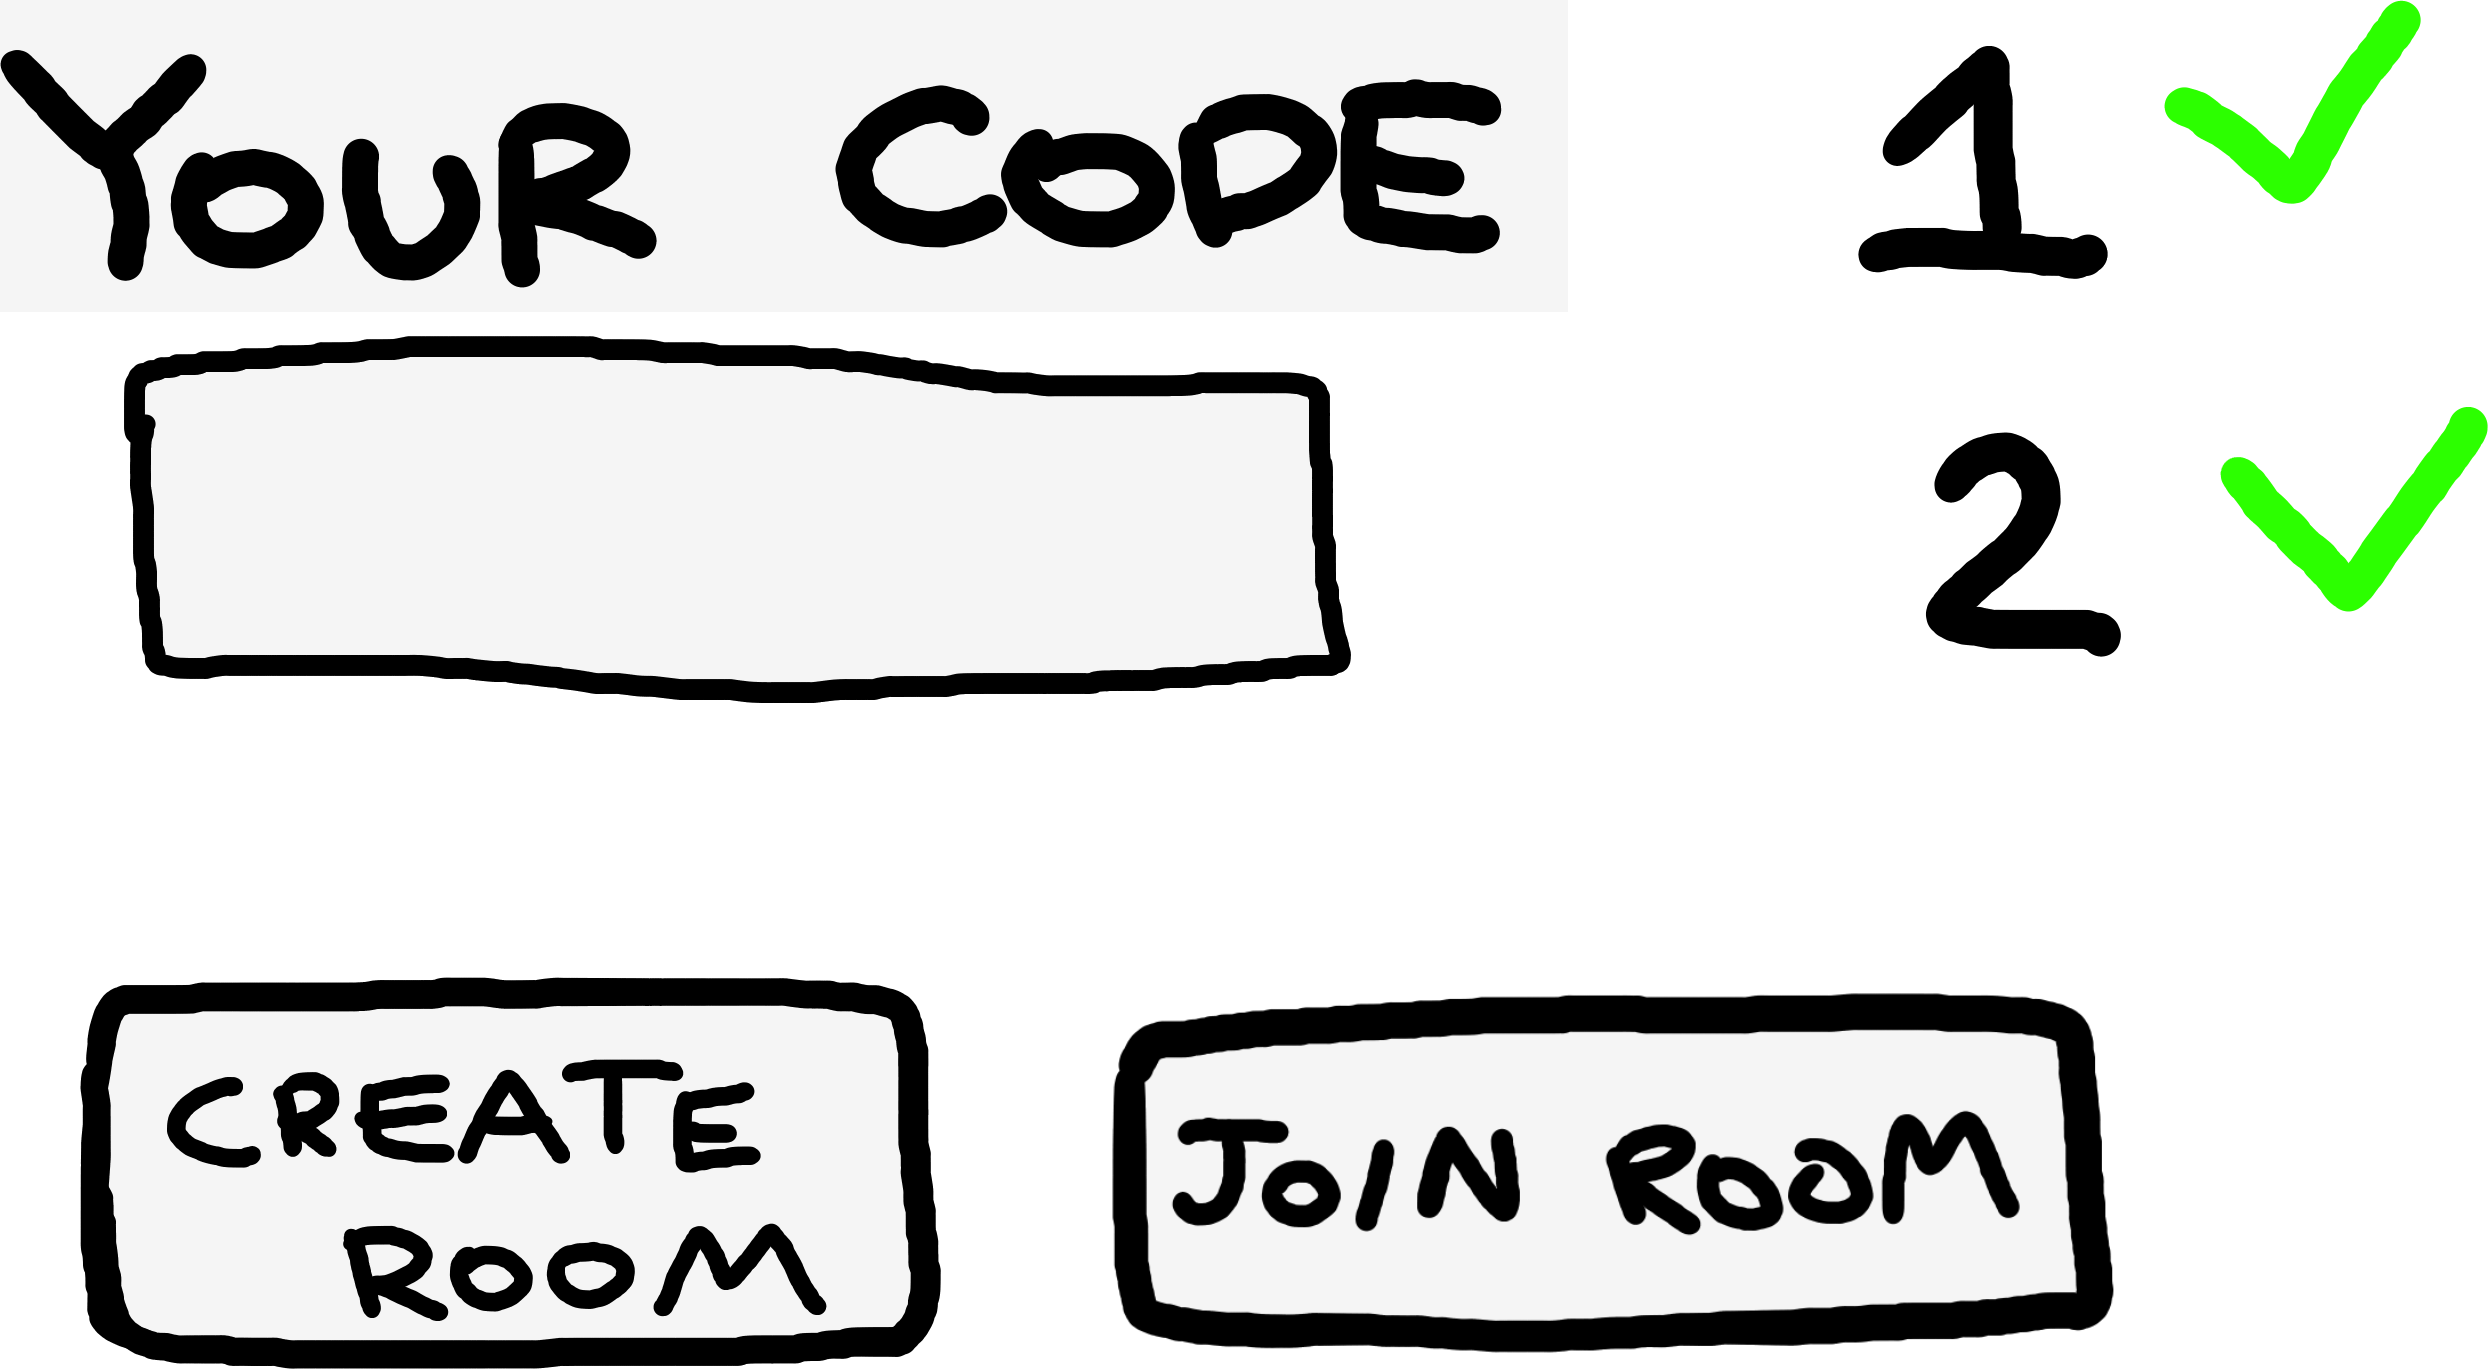 YOUR CODE
1
2
CREATE
ROOM
JOIN ROOM